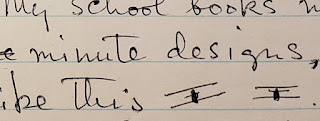 My school books
minute designs,
like this